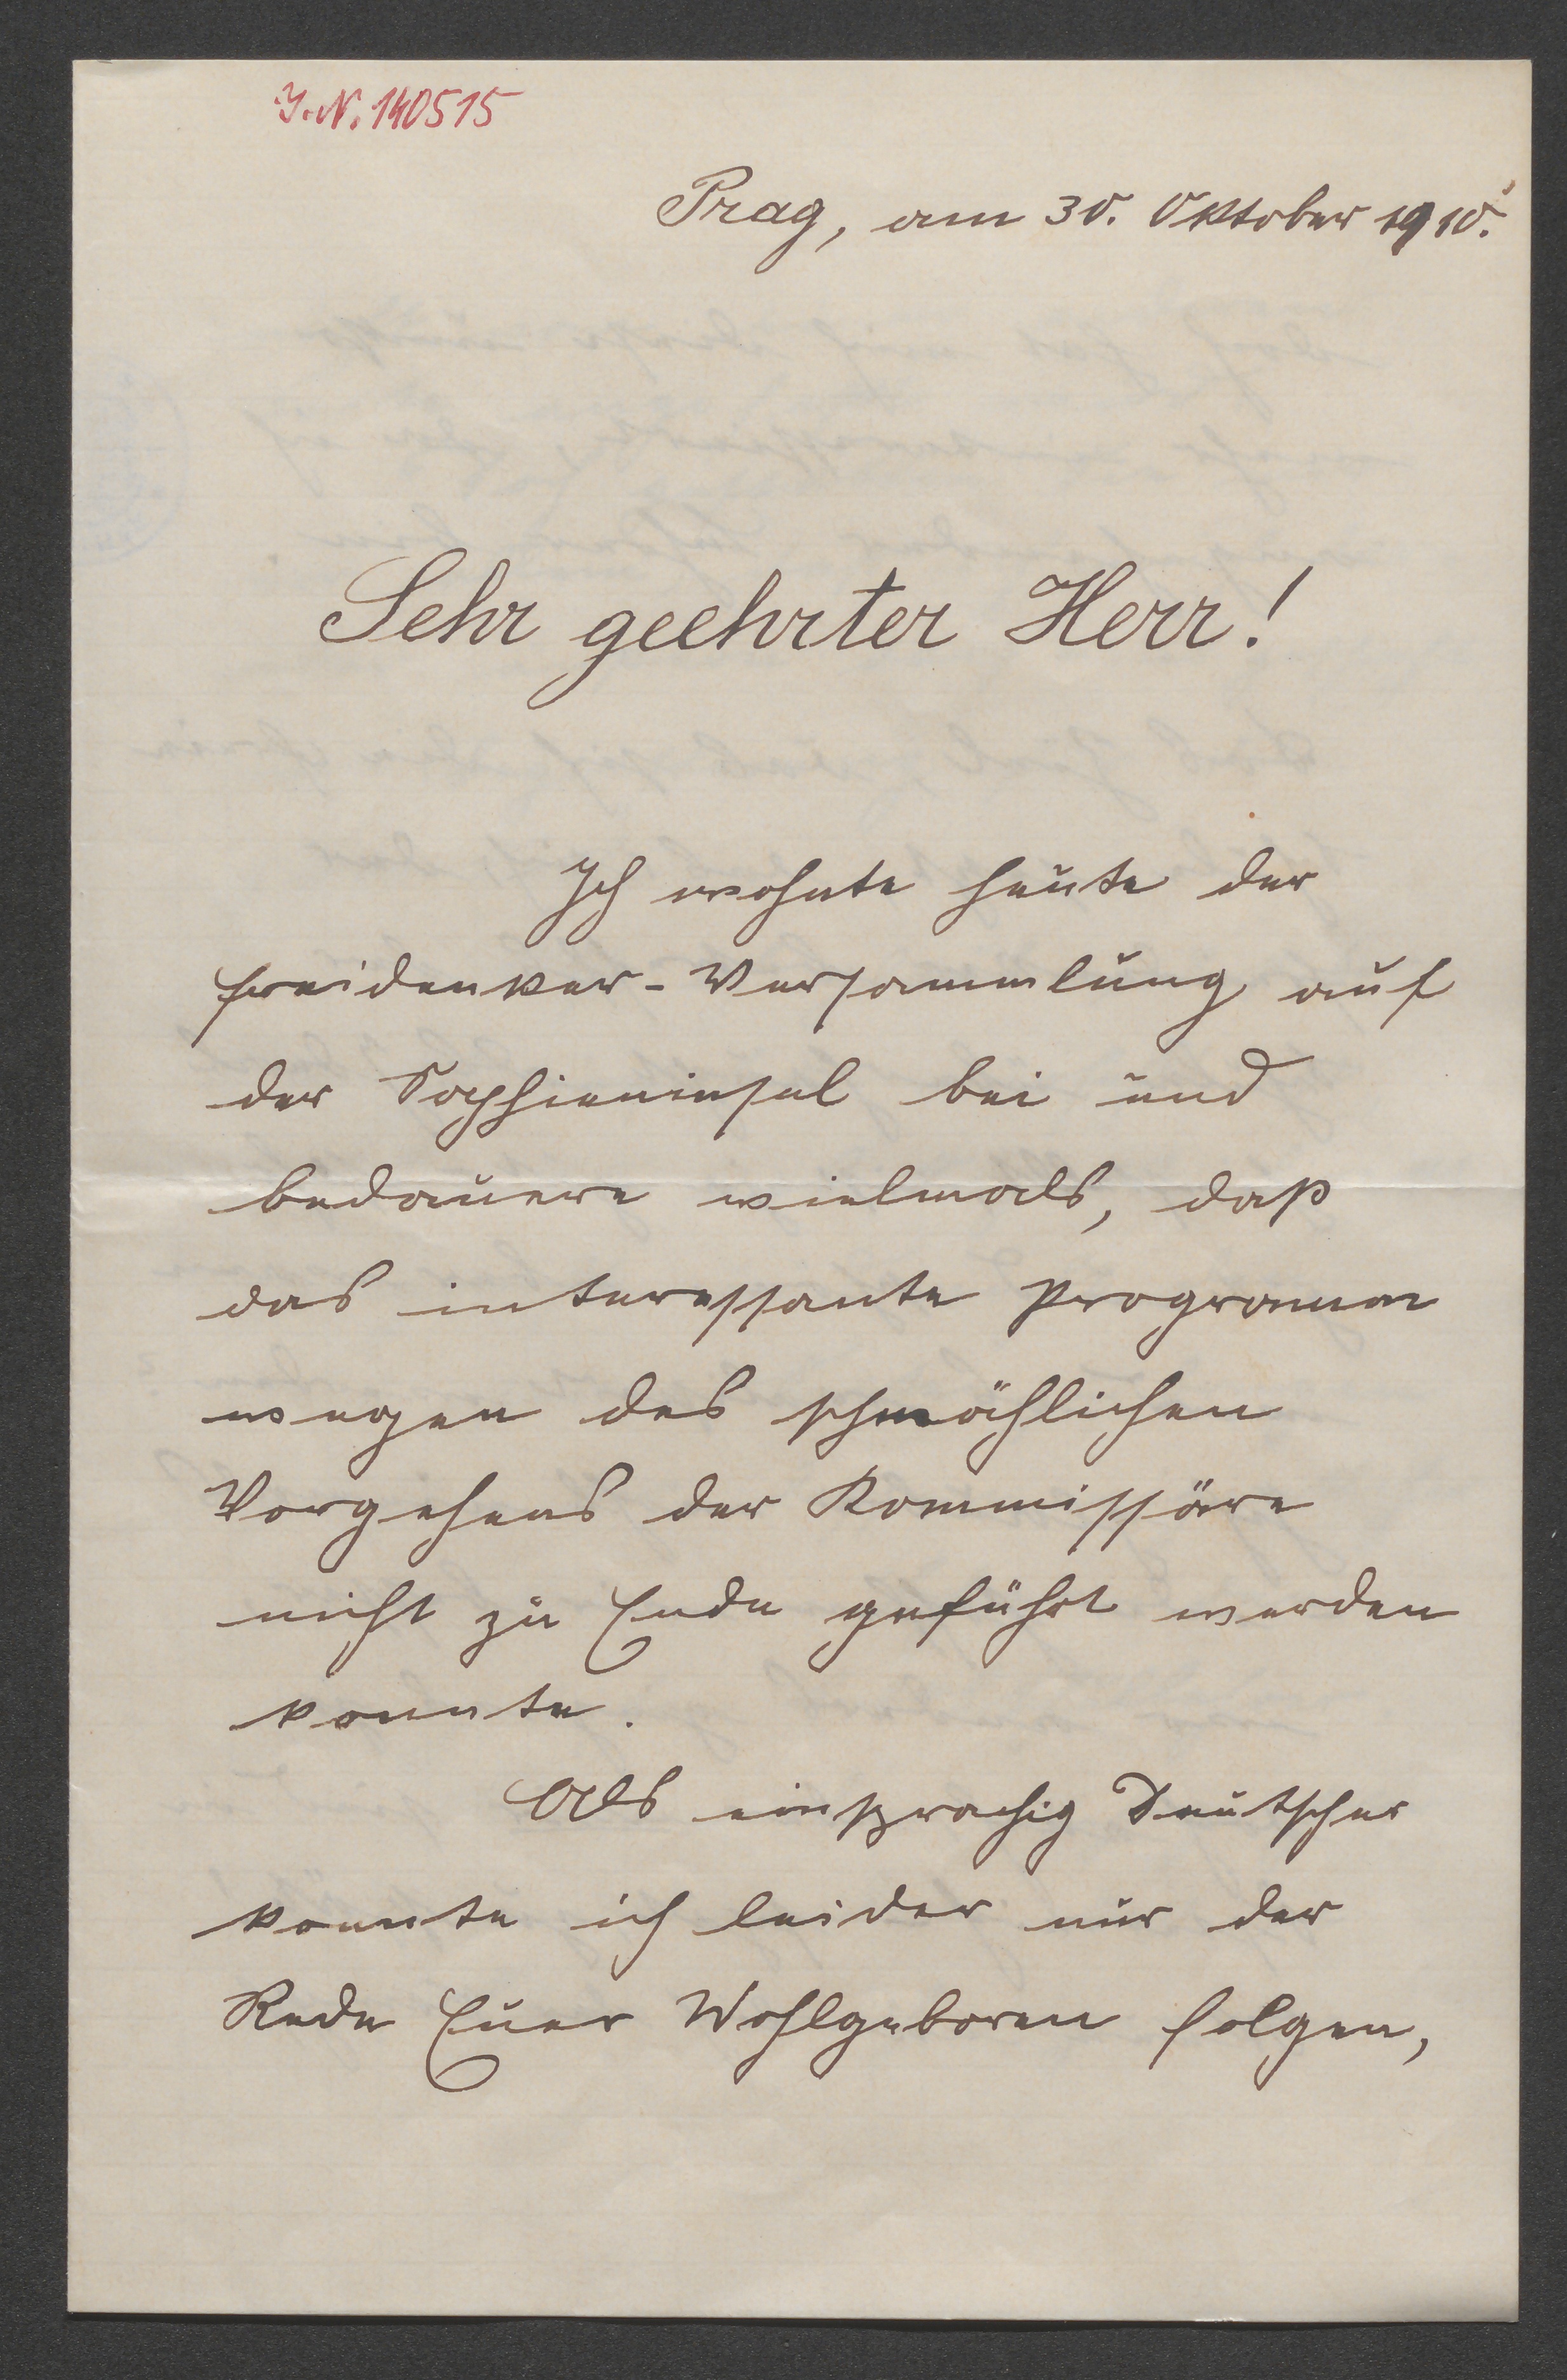 I. N. 140515
Prag, am 30. Oktober 1910.
Sehr geehrter Herr!
Ich wohnte heute der
Freidenker-Versammlung auf
der Sophieninsel bei und
bedauere vielmals, daß
das interessante Programm
wegen des schmählichen
Vorgehens der Kommissäre
nicht zu Ende geführt werden
konnte.
Als einsprachig Deutscher
konnte ich leider nur der
Rede Euer Wohlgeboren folgen,